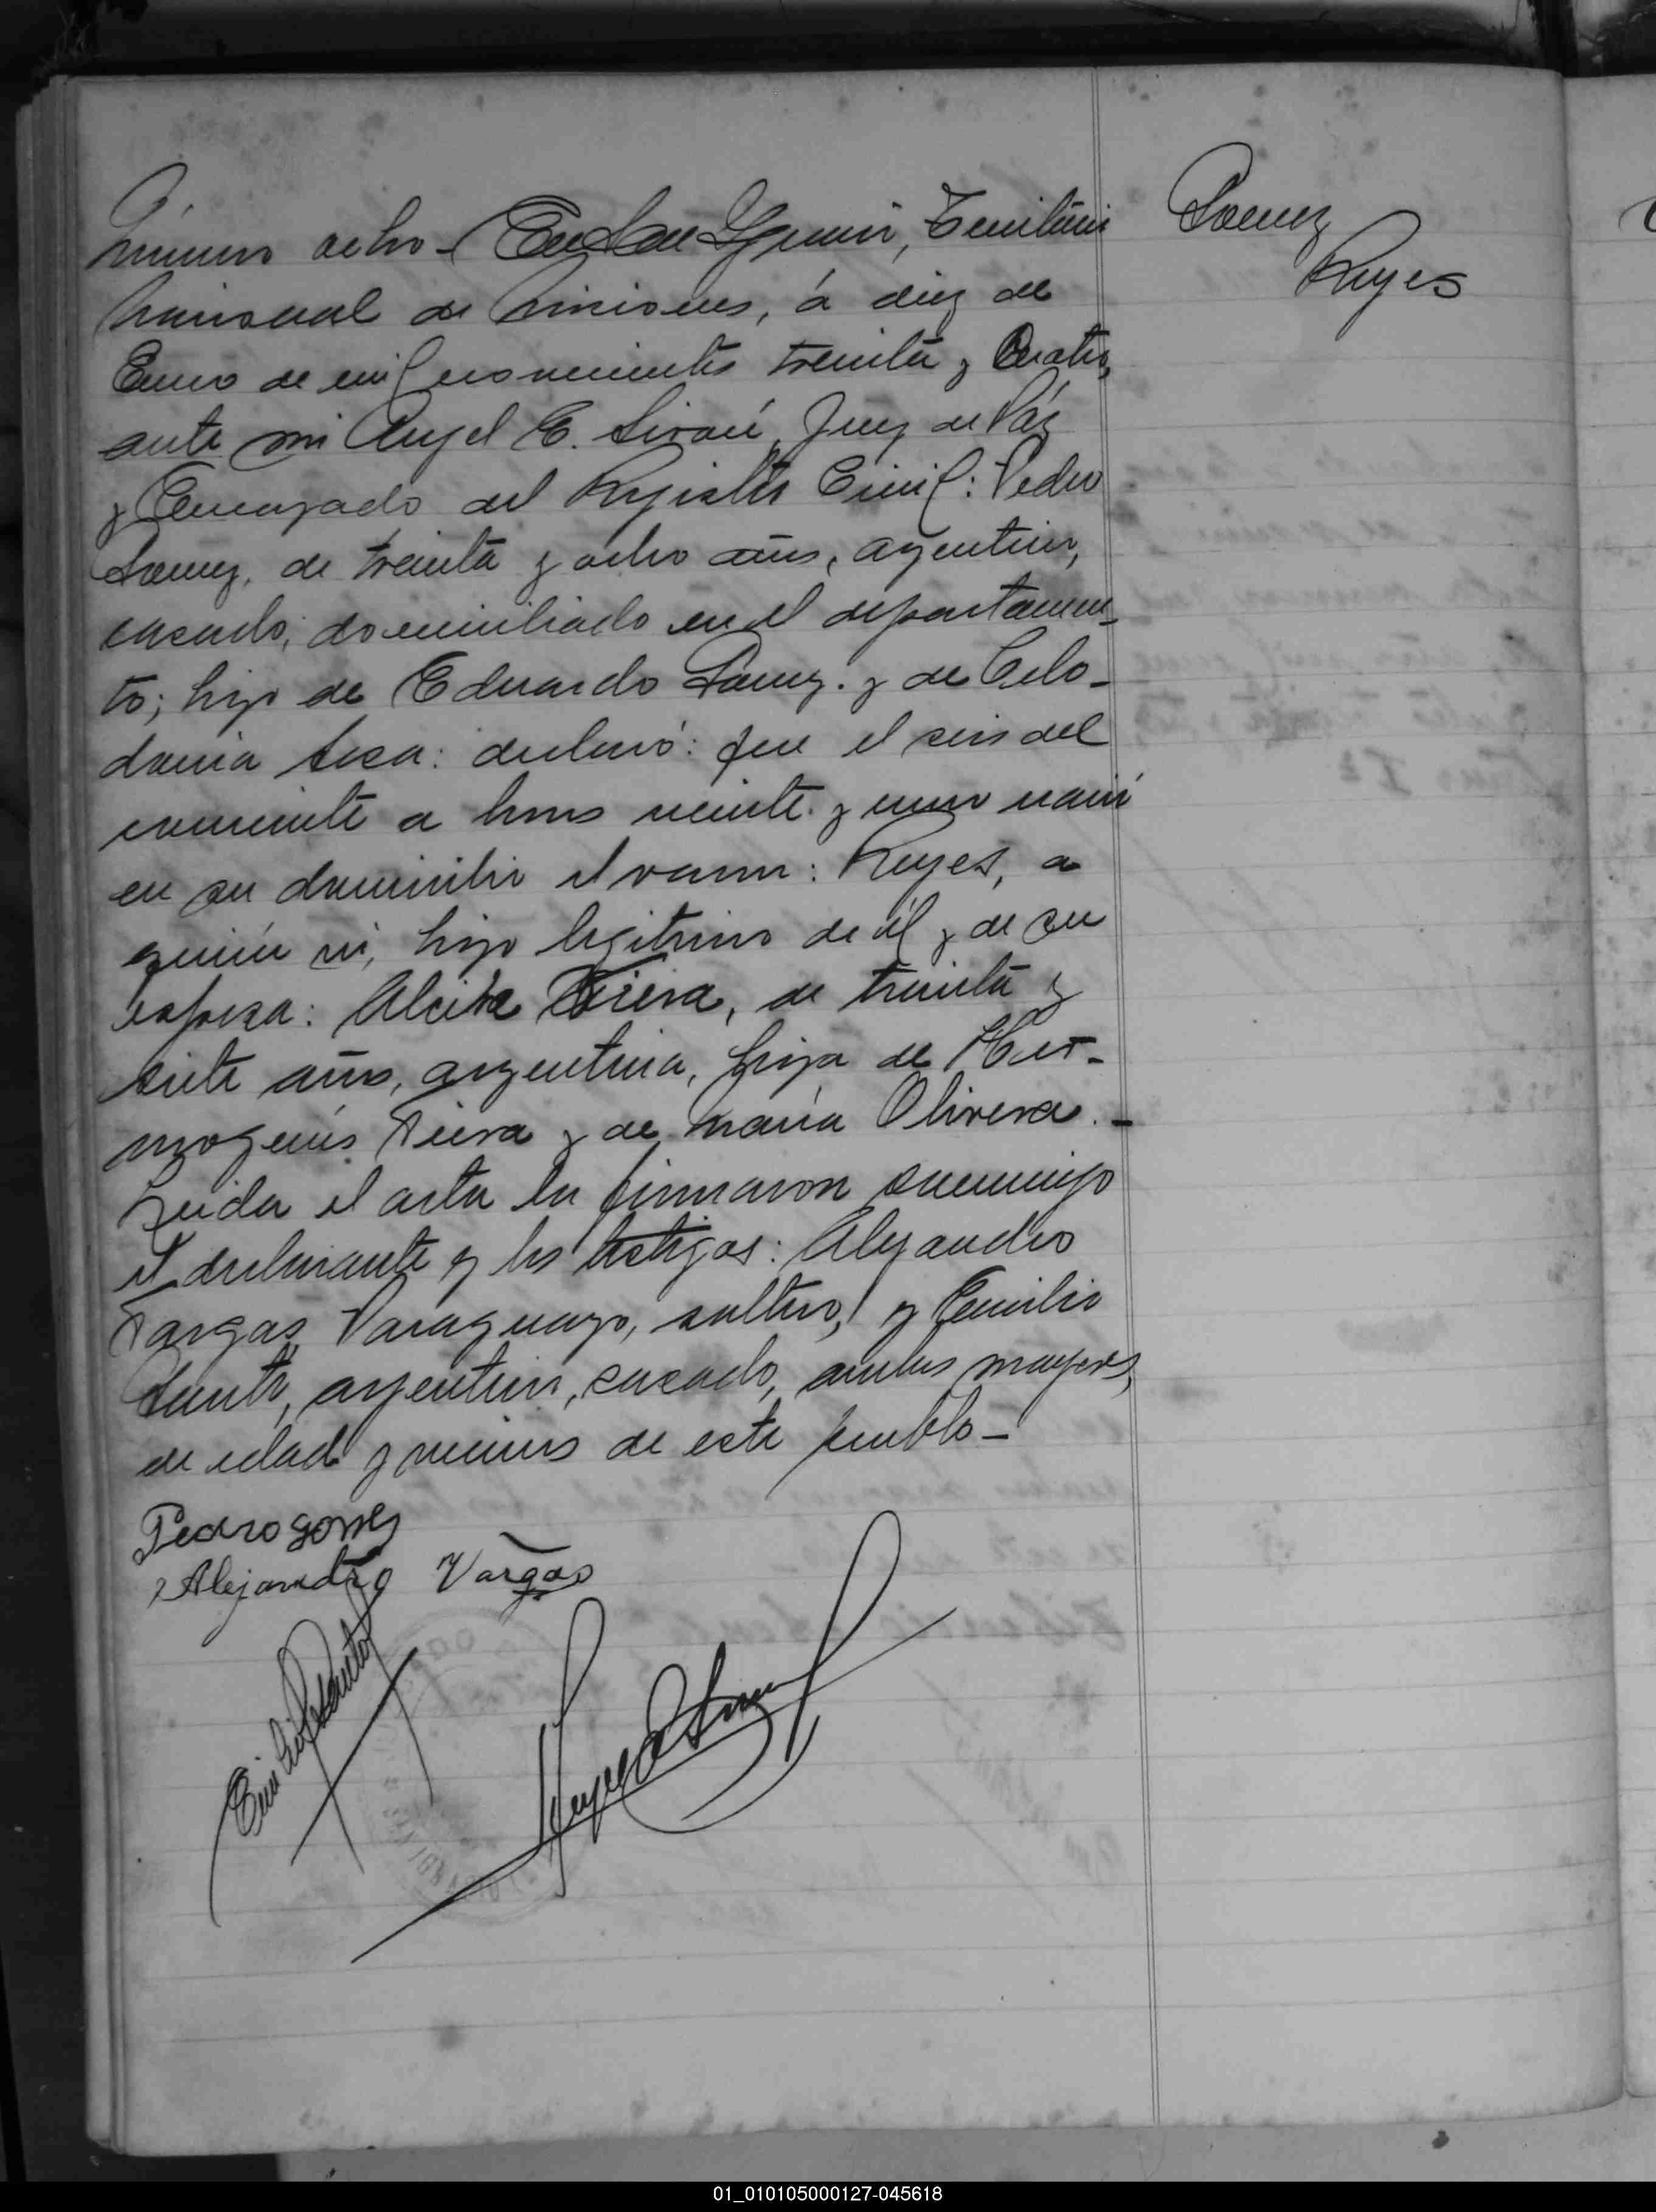 Número ocho - En San Ygnacio, Territorio
Nacional de Misiones, á diez de
Enero de mil novecientos treinta y Cuatro,
ante mi Angel E. Juez de Páz
y Encargado del Registro Civil: Pedro
Gomez, de treinta y ocho años, argentino,
casado, domiciliado en el departamen-
to; hijo de Eduardo Gomez. y de Celo-
donia Sosa: declaró: que el seis del
corriente a horas veinte y uno nació
en su domicilio el varon: Reyes, a
quien ví, hijo legitimo de él y de su
esposa: Vieira, de treinta y
siete años, argentina, hija de Her-
mogenes Vieira y de Maria Olivera. -
Leida el acta la firmaron conmigo
el declarante y los testigos: Alejandro
Vargas, Paraguayo, soltero, y Emilio
argentino, casado, ambos mayores,
de edad y vecinos de este pueblo -
Gomez
Reyes
Pedro gomez
Alejandro Vargas
01_010105000127-045618